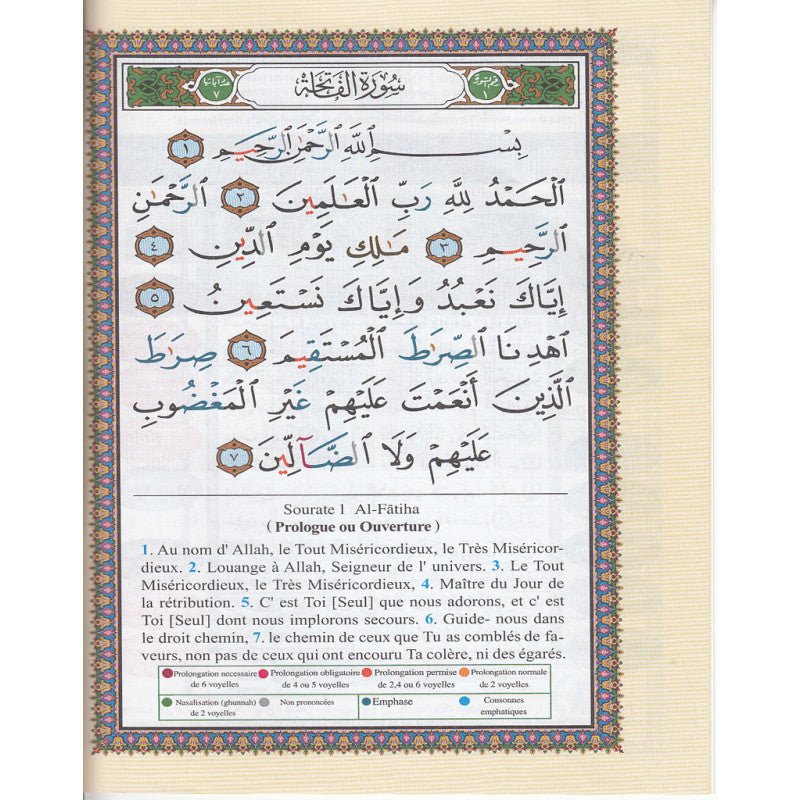 عدد آياتها ٧ سُورَةُ الفَاتِحَة ١
بِسْمِ ٱللَّهِ ٱلرَّحْمَٰنِ ٱلرَّحِيمِ ١
ٱلْحَمْدُ لِلَّهِ رَبِّ ٱلْعَـٰلَمِينَ ٢ ٱلرَّحْمَـٰنِ
ٱلرَّحِيمِ ٣ مَـٰلِكِ يَوْمِ ٱلدِّينِ ٤
إِيَّاكَ نَعْبُدُ وَإِيَّاكَ نَسْتَعِينُ ٥
ٱهْدِنَا ٱلصِّرَٰطَ ٱلْمُسْتَقِيمَ ٦ صِرَٰطَ
ٱلَّذِينَ أَنْعَمْتَ عَلَيْهِمْ غَيْرِ ٱلْمَغْضُوبِ
عَلَيْهِمْ وَلَا ٱلضَّآلِّينَ ٧
Sourate 1 Al-Fātiha
( Prologue ou Ouverture )
1. Au nom d' Allah, le Tout Miséricordieux, le Très Miséricor-
dieux. 2. Louange à Allah, Seigneur de l' univers. 3. Le Tout
Miséricordieux, le Très Miséricordieux, 4. Maître du Jour de
la rétribution. 5. C' est Toi [Seul] que nous adorons, et c' est
Toi [Seul] dont nous implorons secours. 6. Guide- nous dans
le droit chemin, 7. le chemin de ceux que Tu as comblés de fa-
veurs, non pas de ceux qui ont encouru Ta colère, ni des égarés.
Prolongation necessaire de 6 voyelles
Prolongation obligatoire de 4 ou 5 voyelles
Prolongation permise de 2,4 ou 6 voyelles
Prolongation normale de 2 voyelles
Nasalisation (ghunnah) de 2 voyelles
Non prononcées
Emphase
Consonnes emphatiques